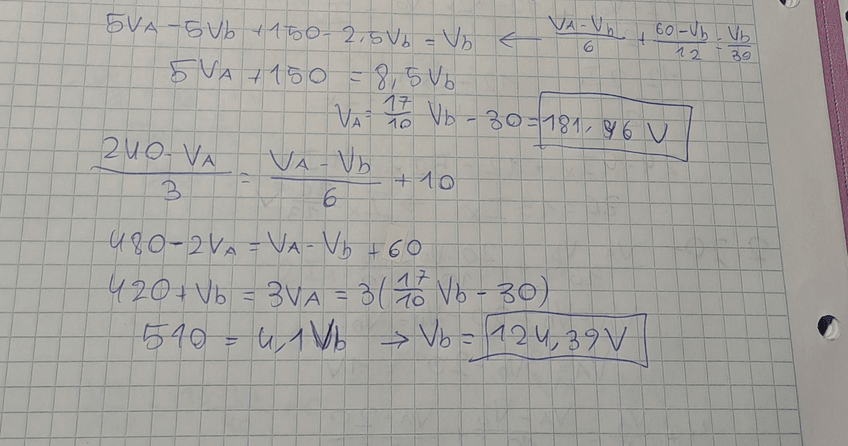 5VA - 5Vb + 150 - 2.5Vb = Vb ← (VA - Vb)/6 + (60 - Vb)/12 = Vb/30
5VA + 150 = 8,5Vb
VA = 17/10 Vb - 30 = 181,46 V
(240 - VA)/3 = (VA - Vb)/6 + 10
480 - 2VA = VA - Vb + 60
420 + Vb = 3VA = 3(17/10 Vb - 30)
510 = 4,1Vb → Vb = 124,39V